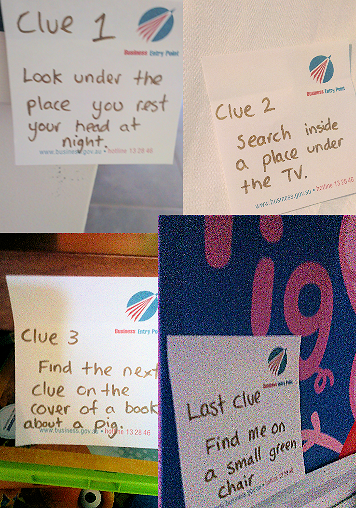 Clue 1
Business Entry Point
Look under the
place you rest
your head at
night.
www.business.gov.au • hotline 13 28 46
Clue 2
Business Entry Point
Search inside
a place under
the TV.
www.business.gov.au • hotline 13 28 46
Clue 3
Business Entry Point
Find the next
clue on the
cover of a book
about a pig.
www.business.gov.au • hotline 13 28 46
ig
Last Clue
Business Entry Point
Find me on
a small green
chair.